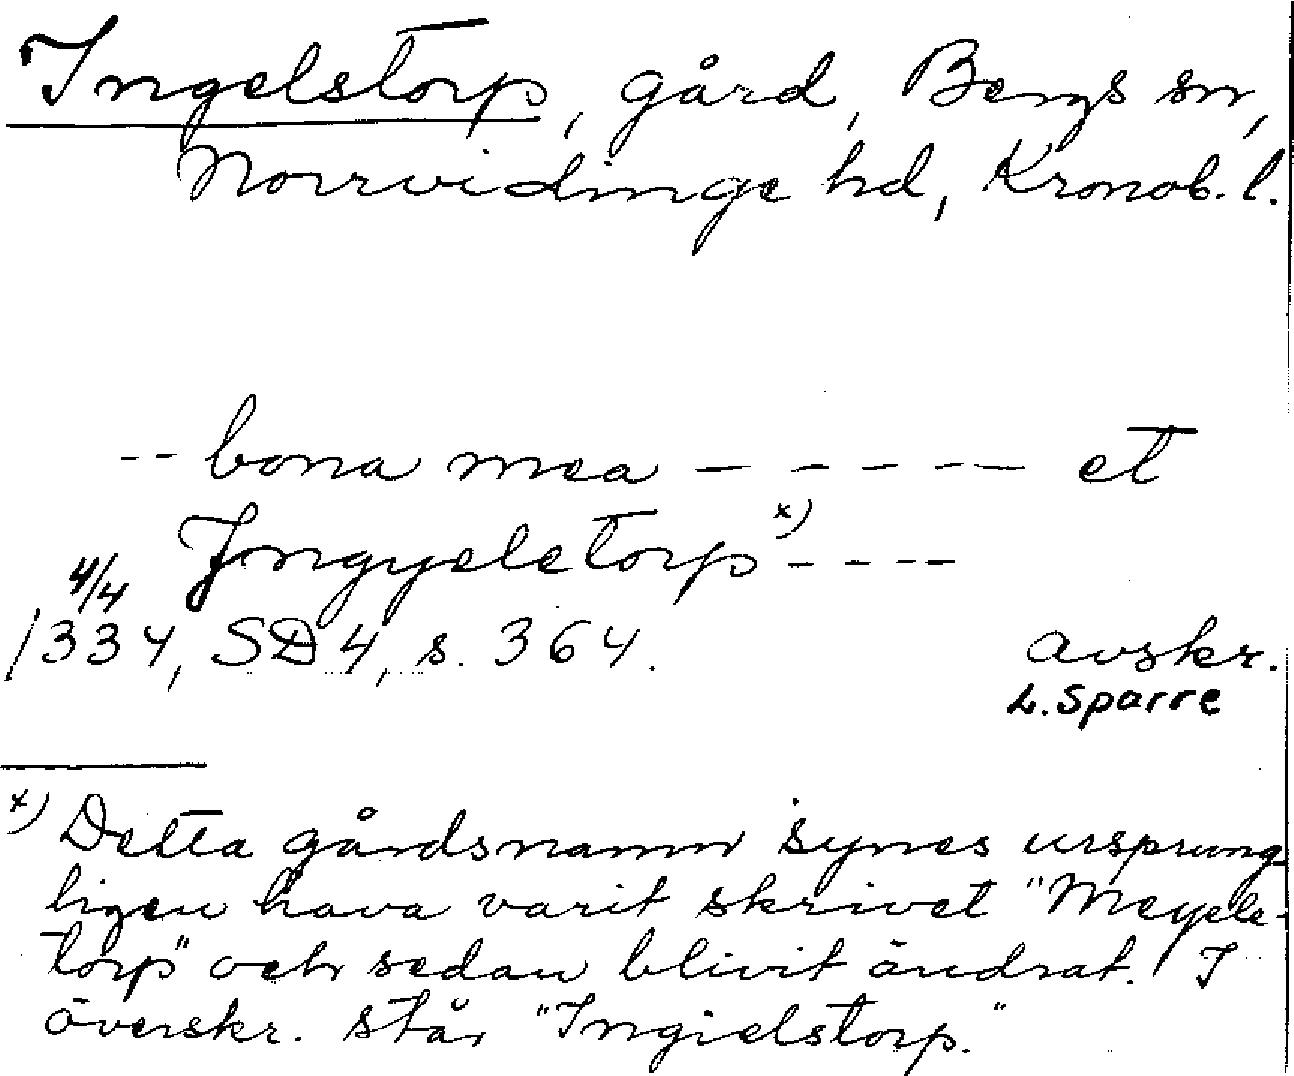 Ingelstorp, gård, Bergs sn,
Norrvidinge hd, Kronob. l.
-- bona mea - - - - - - et
Jngyeletorp x) - - - -
4/4
1334, SD 4, s. 364.
Avskr.
L. Sparre
x) Detta gårdsnamn synes ursprung-
ligen hava varit skrivet "Meyele-
torp" och sedan blivit ändrat. I
överskr. står "Ingielstorp."